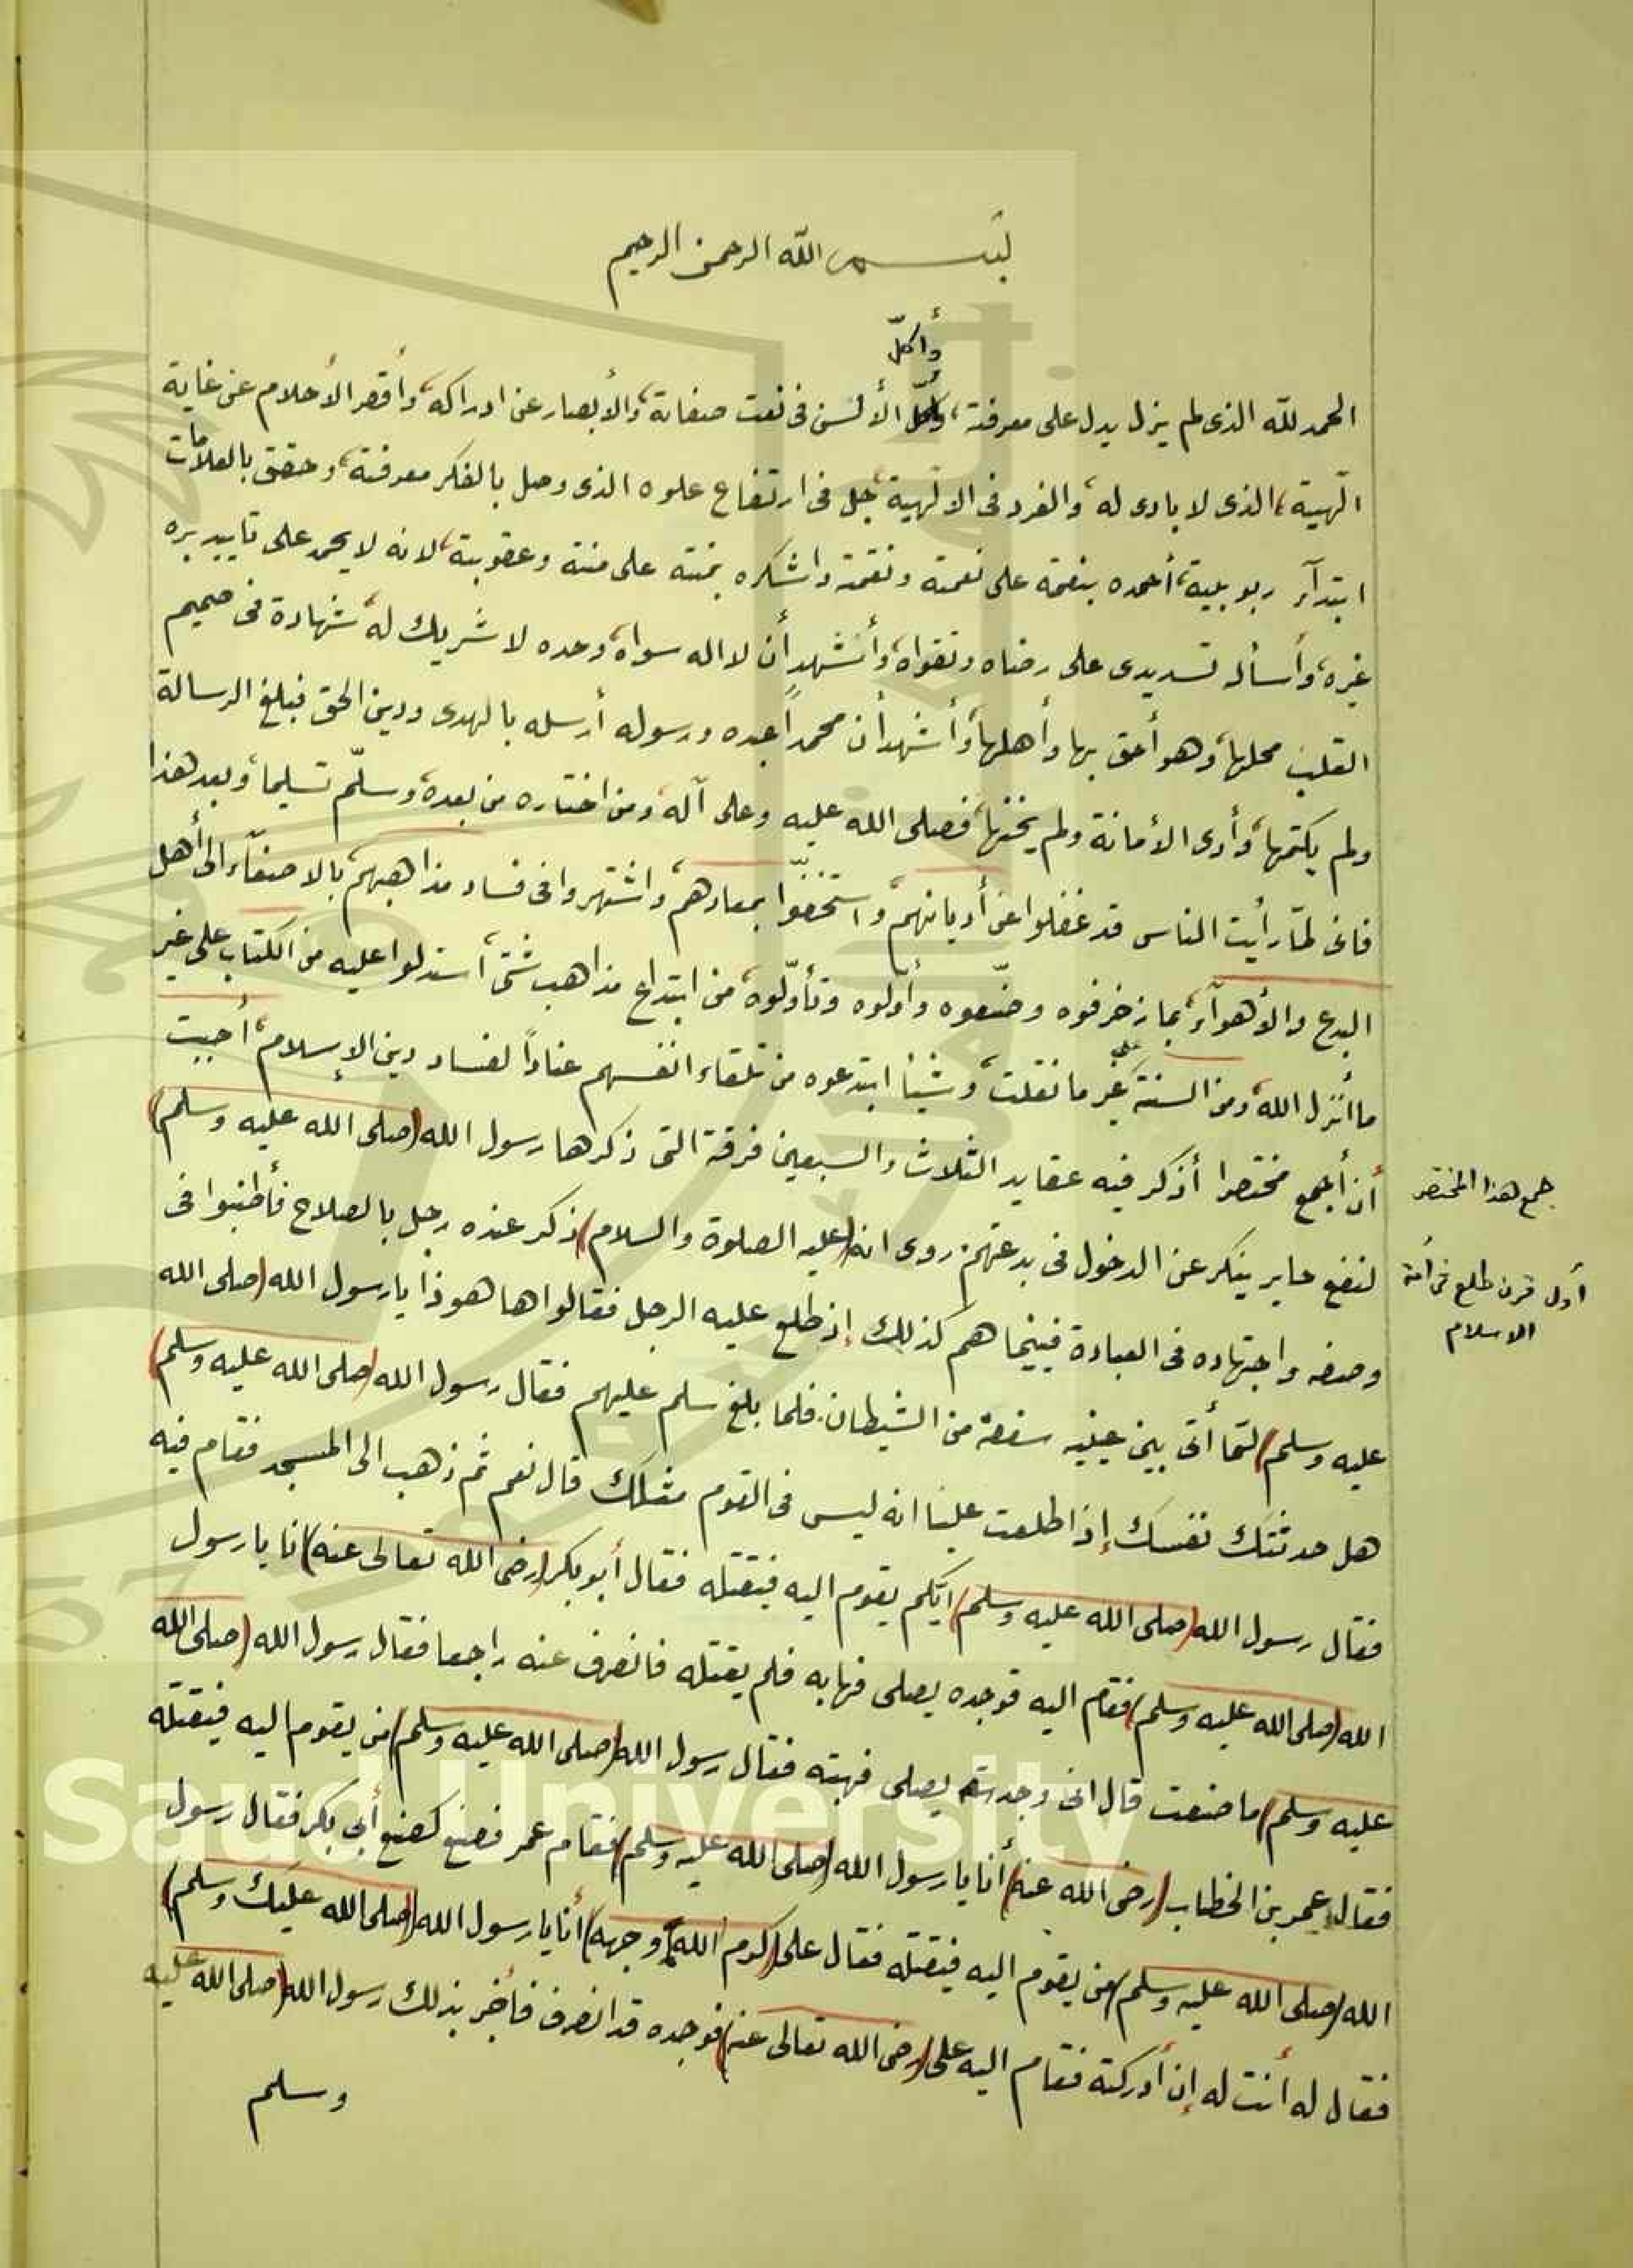 بسم الله الرحمن الرحيم
وأكلّ
الحمد لله الذى لم يزل يدل على معرفته، الألسن فى نعت صفاته، والأبصار عن ادراكه، وأقصر الأحلام عن غاية
الٓهيته، الذى لا بادى له، والفرد فى الالٓهية، جل فى ارتفاع علوه الذى وصل بالفكر معرفته، وحقق بالعلامات
ابتدآء ربوبيته، أحمده بنعمه على نعمته ونقمته واشكره بمنته على مننه وعقوبته، لانه لا يحمد على تاييد بره
غيره، وأسأله تسديدى على رضاه وتقواه، وأشهد أن لا اله سواه، وحده لا شريك له، شهادة فى صميم
القلب محلها، وهو أحق بها وأهلها، وأشهد أن محمداً عبده ورسوله أرسله بالهدى ودين الحق فبلغ الرسالة
ولم يكتمها، وأدى الأمانة ولم يخنها، فصلى الله عليه وعلى آله، ومن اختاره من بعده، وسلّم تسليما، وبعد هذا
فانى لمّا رأيت الناس قد غفلوا عن أديانهم، واستخفّوا بمعادهم، واشتهروا فى فساد مذاهبهم، بالاصغآء الى أهل
البدع والأهوآء، بما زخرفوه وصنّعوه وأوّلوه وتأوّلوه، من ابتداع مذاهب شتى، استدلوا عليه من الكتاب على غير
ما أنزل الله، ومن السنة على غير ما نقلت، وشيئا ابتدعوه من تلقاء انفسهم عناداً لفساد دين الإسلام، أحببت
أن أجمع مختصرا أذكر فيه عقايد الثلاث والسبعين فرقة التى ذكرها رسول الله (صلى الله عليه وسلم)
جمع هذا المختصر
لنفع عن الدخول فى بدعتهم روى انه (عليه الصلوة والسلام) ذكر عنده رجل بالصلاح فأطنبوا فى
أول قرن طلع فى أمة
الاسلام
وصفه واجتهاده فى العبادة فبينما هم كذلك إذ طلع عليه الرجل فقالوا ها هو ذا يا رسول الله (صلى الله
عليه وسلم) أتى بين عينيه سفعة من الشيطان، فلما بلغ سلم عليهم فقال رسول الله (صلى الله عليه وسلم)
هل حدثتك نفسك إذا طلعت علينا انه ليس فى القوم مثلك قال نعم ثم ذهب الى المسجد فقام فيه
فقال رسول الله (صلى الله عليه وسلم) ايّكم يقوم اليه فيقتله فقال أبو بكر (رضى الله تعالى عنه) انا يا رسول
الله (صلى الله عليه وسلم) فقام اليه فوجده يصلى فهابه فلم يقتله فانصرف عنه راجعا فقال رسول الله (صلى الله
عليه وسلم) ما صنعت قال انى وجدته يصلى فهبته فقال رسول الله (صلى الله عليه وسلم) من يقوم اليه فيقتله
فقال عمر بن الخطاب (رضى الله عنه) أنا يا رسول الله (صلى الله عليه وسلم) فقام عمر فصنع كصنع أبى بكر فقال رسول
الله (صلى الله عليه وسلم) من يقوم اليه فيقتله فقال على (كرم الله وجهه) أنا يا رسول الله (صلى الله عليك وسلم)
فقال له أنت له إن أدركته فقام اليه على (رضى الله تعالى عنه) فوجده قد انصرف فأخبر بذلك رسول الله (صلى الله عليه
وسلم
Saud University